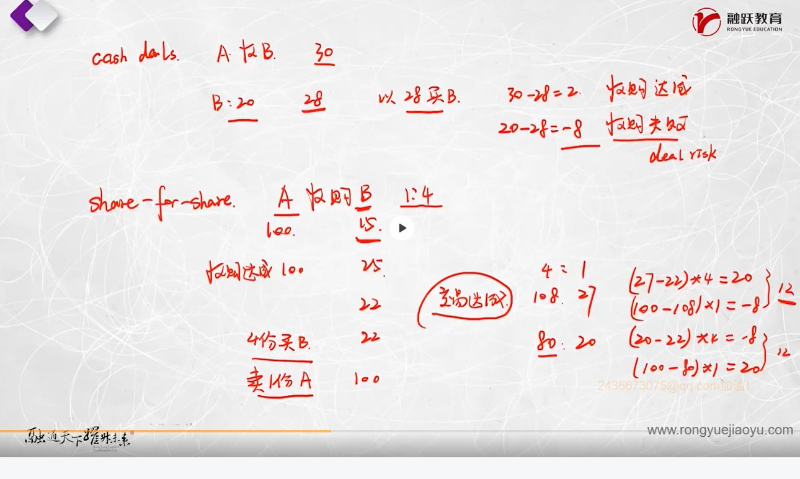 融跃教育
RONGYUE EDUCATION
cash deals. A 收 B. 30
B:20 28 以 28 买 B. 30-28=2. 收购达成
20-28=-8 收购失败
deal risk
share-for-share. A 收购 B 1:4
100. 15.
收购达成 100 25.
22
4份买B. 22
卖1份A 100
交易达成.
4 = 1
108. 27
80: 20
(27-22)*4=20
(100-108)*1=-8 12
(20-22)*4=-8
(100-80)*1=20 12
融通天下 耀升未来
www.rongyuejiaoyu.com